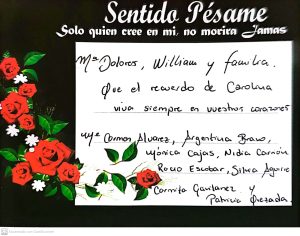 Sentido Pésame
Solo quien cree en mi, no morira Jamas
Ma Dolores, William y familia.
Que el recuerdo de Carolina
viva siempre en vuestros corazones
Carmen Alvarez, Argentina Bravo,
Mónica Cajas, Nidia Carrión,
Rocio Escobar, Silvia Aguirre
Carmita Gardanez y
Patricia Quezada.